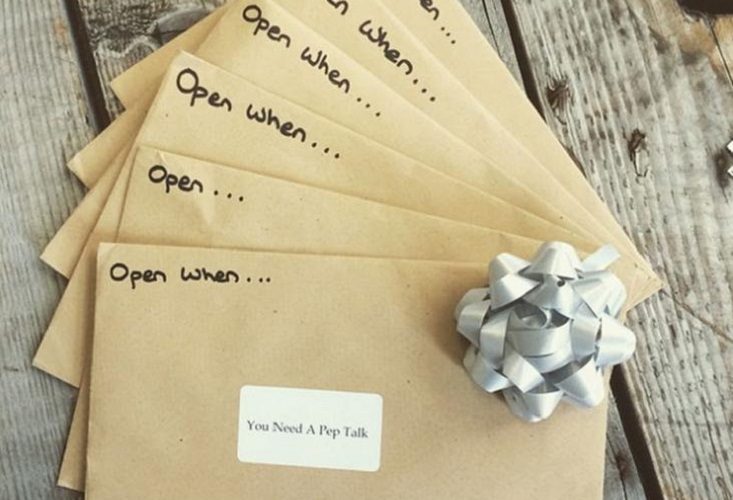 when...
Open when...
Open when...
Open...
Open when...
You Need A Pep Talk